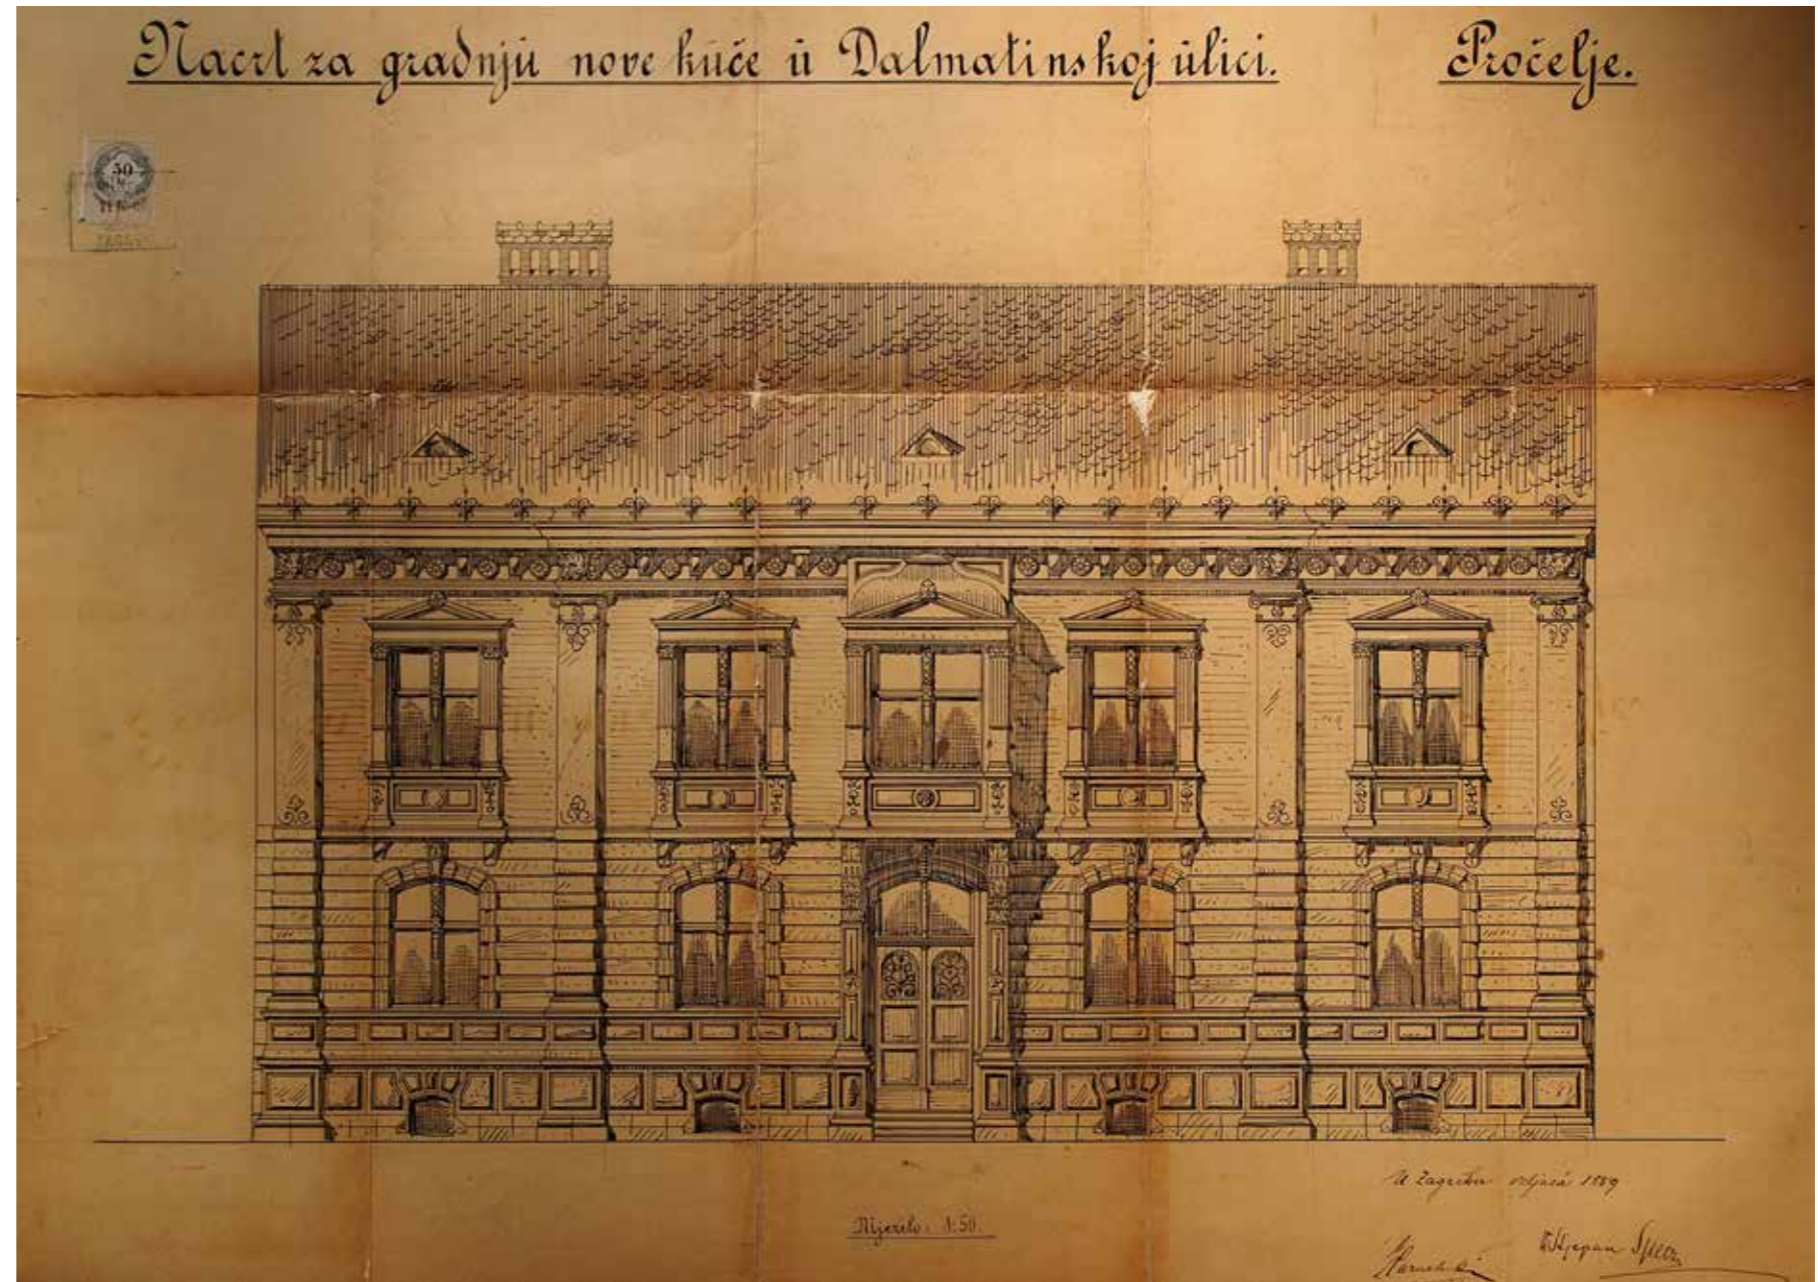 Nacrt za gradnju nove kuće u Dalmatinskoj ulici. Pročelje.
50
Mjerilo: 1:50.
U Zagrebu veljača 1889
Stjepan